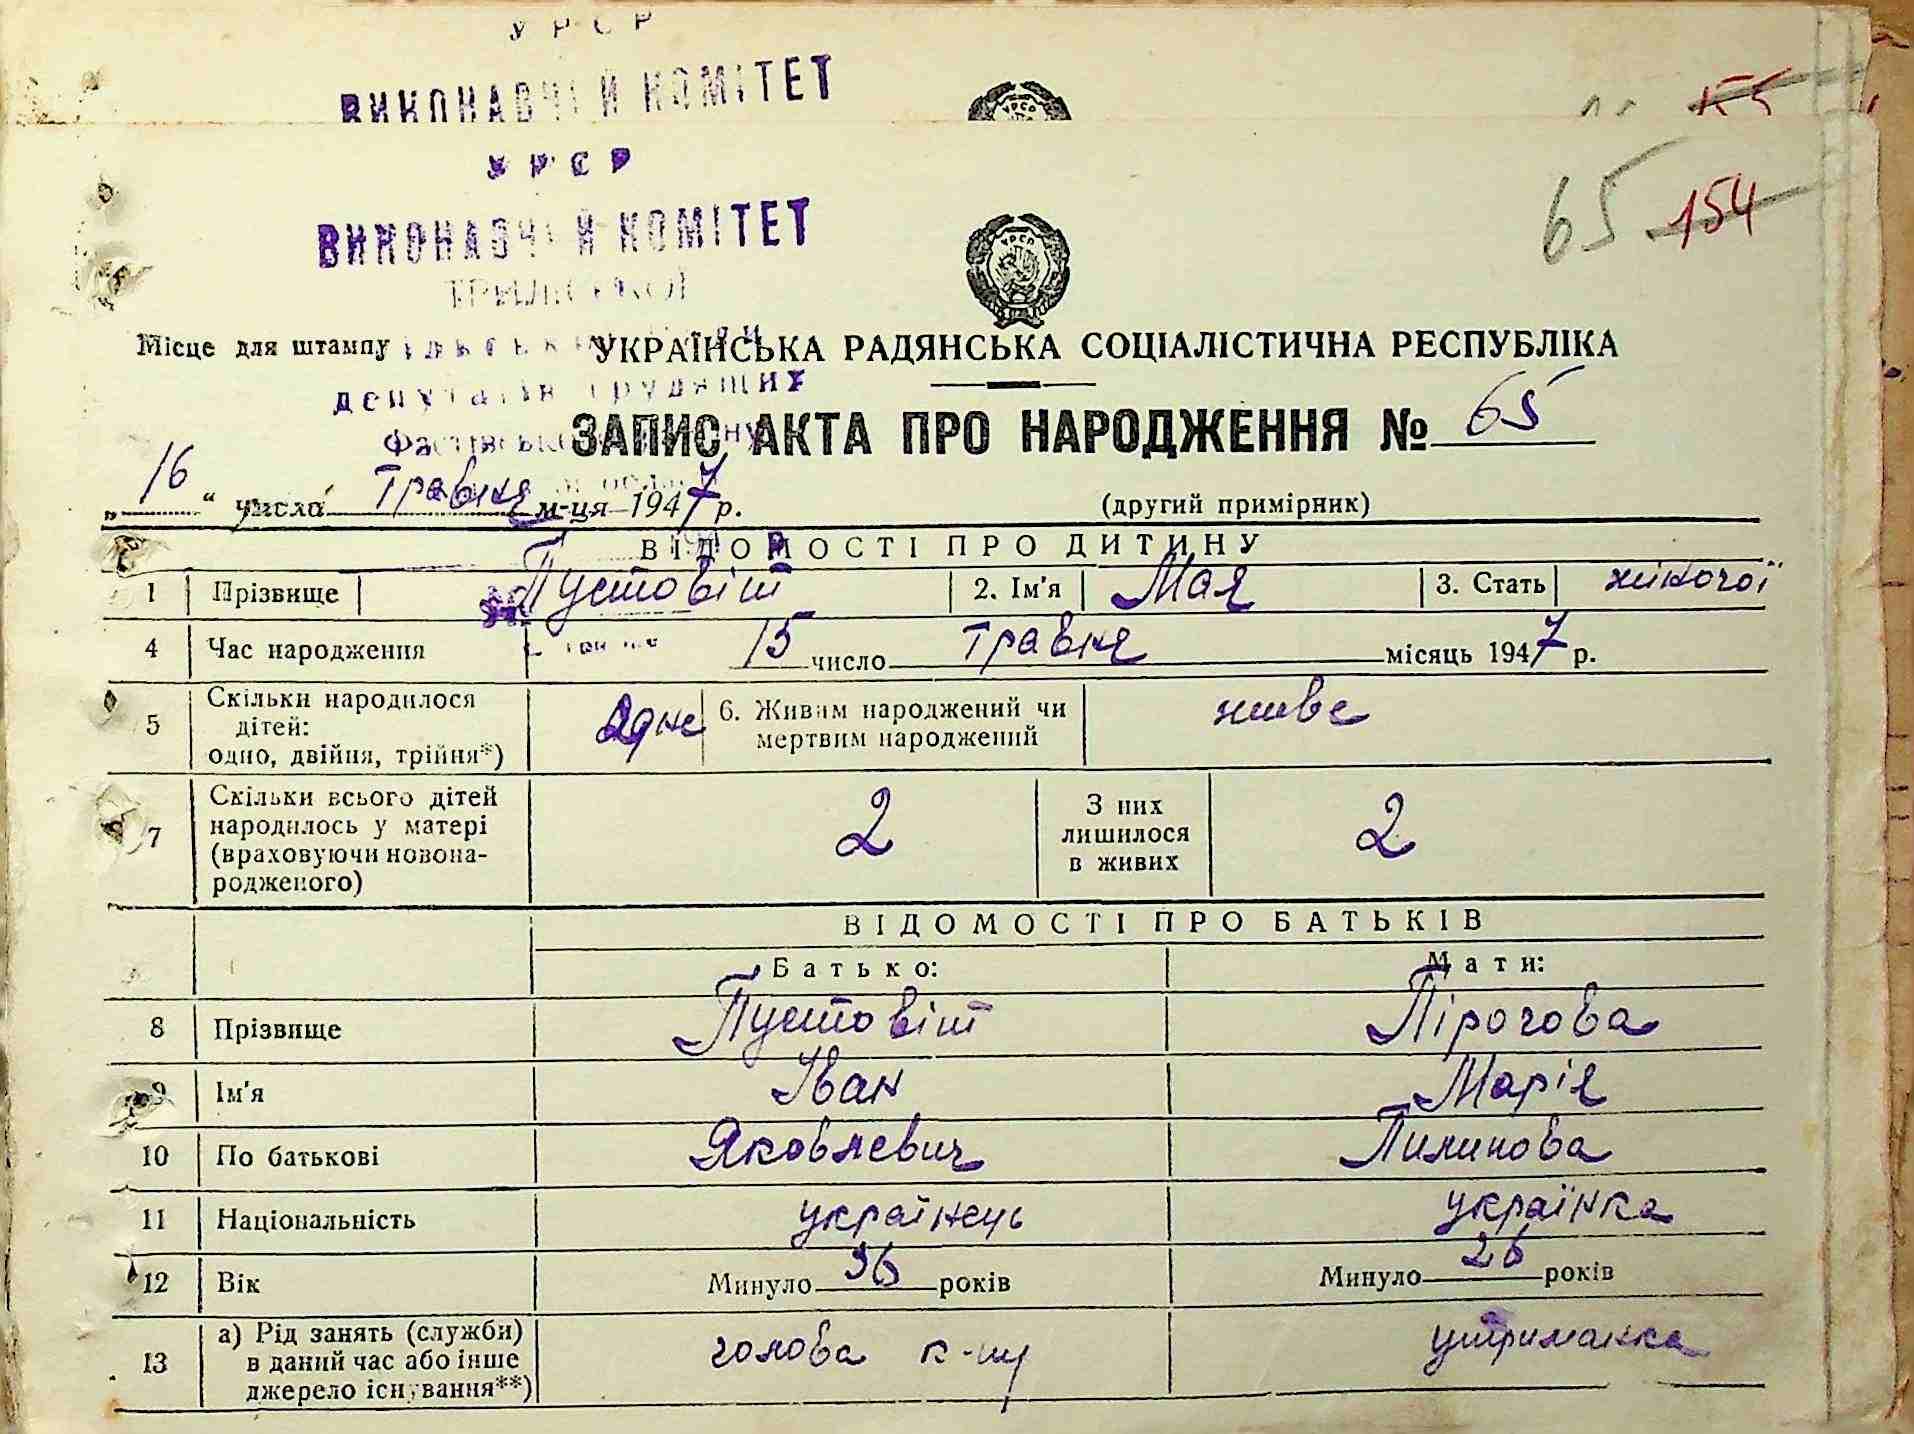 УРСР
ВИКОНАВЧИЙ КОМІТЕТ
155
УРСР
ВИКОНАВЧИЙ КОМІТЕТ
65 154
УРСР
ТРИЛІСЬКОЇ
Місце для штампу
УКРАЇНСЬКА РАДЯНСЬКА СОЦІАЛІСТИЧНА РЕСПУБЛІКА
депутатів трудящих
ЗАПИС АКТА ПРО НАРОДЖЕННЯ № 65
„16“ числа Травня м-ця 1947 р.
(другий примірник)
ВІДОМОСТІ ПРО ДИТИНУ
1 Прізвище Пустовіт 2. Ім'я Мая 3. Стать жіночої
4 Час народження 15 число Травня місяць 1947 р.
5 Скільки народилося дітей: одно, двійня, трійня*) Одне 6. Живим народжений чи мертвим народжений живе
7 Скільки всього дітей народилось у матері (враховуючи новонародженого) 2 З них лишилося в живих 2
ВІДОМОСТІ ПРО БАТЬКІВ
Батько: Мати:
8 Прізвище Пустовіт Пірогова
9 Ім'я Іван Марія
10 По батькові Яковлевич Пилипова
11 Національність українець українка
12 Вік Минуло 36 років Минуло 26 років
13 а) Рід занять (служби) в даний час або інше джерело існування**) голова к-пу утриманка